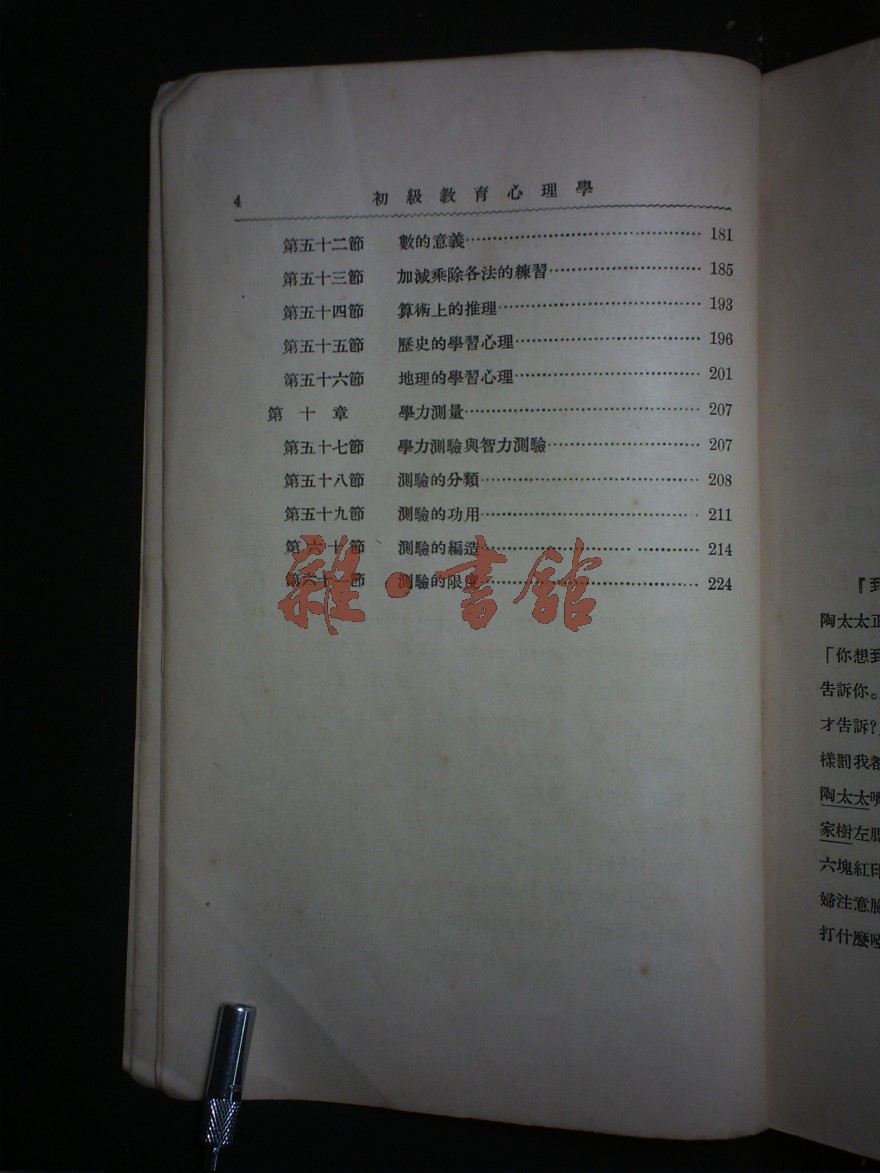 4 初級教育心理學
第五十二節 數的意義 181
第五十三節 加減乘除各法的練習 185
第五十四節 算術上的推理 193
第五十五節 歷史的學習心理 196
第五十六節 地理的學習心理 201
第十章 學力測量 207
第五十七節 學力測驗與智力測驗 207
第五十八節 測驗的分類 208
第五十九節 測驗的功用 211
第六十節 測驗的編造 214
第六十一節 測驗的限度 224
雜·書館
『到
陶太太正
「你想到
告訴你。
才告訴?
樣罰我都
陶太太
家樹左腮
六塊紅印
婦注意臉
打什麼